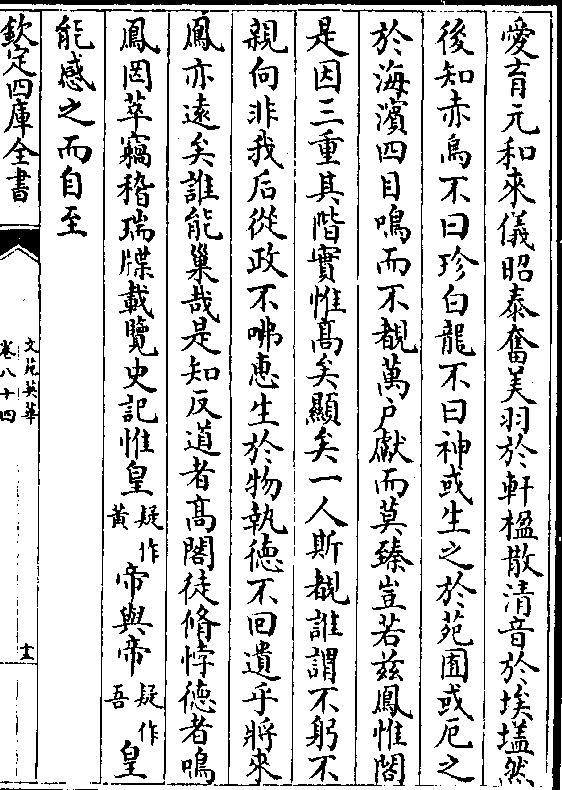 愛育元和來儀昭泰奮美羽於軒楹散清音於埃壒然
後知赤鳥不曰珍白龍不曰神或生之於苑囿或厄之
於海濱四目鳴而不覩萬户獻而莫臻豈若兹鳳惟閣
是因三重其階實惟髙矣顯矣一人斯覩誰謂不躬不
親向非我后從政不咈惠生於物執德不回遺乎將來
鳳亦逺矣誰能巢哉是知反道者髙閣徒脩悖德者鳴
鳳罔萃竊稽瑞牒載覽史記惟皇疑作黄帝與帝疑作吾皇
能感之而自至
欽定四庫全書
文苑英華
卷八十四
十三